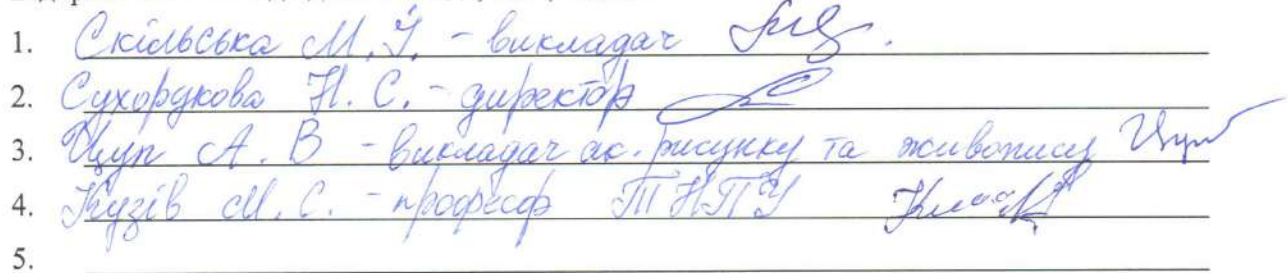 1. Скільська М. Й. - викладач
2. Сухорукова Н. С. - директор
3. Цуп А. В - викладач ак. рисунку та живопису
4. Кузів М. С. - професор ТНПУ
5.